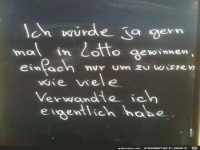 Ich würde ja gern
mal in Lotto gewinnen,
einfach nur um zu wissen
wie viele
Verwandte ich
eigentlich habe...